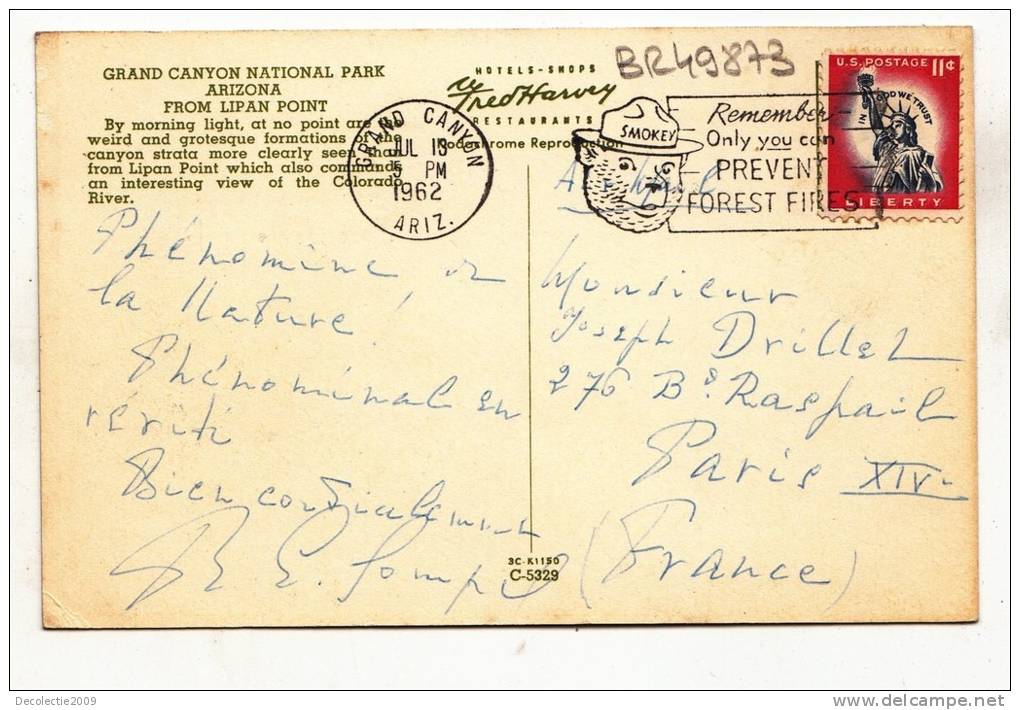 BR49873
GRAND CANYON NATIONAL PARK
ARIZONA
FROM LIPAN POINT
By morning light, at no point are the
weird and grotesque formations of the
canyon strata more clearly seen than
from Lipan Point which also commands
an interesting view of the Colorado
River.
HOTELS - SHOPS
Fred Harvey
RESTAURANTS
Kodachrome Reproduction
GRAND CANYON
JUL 13
5 PM
1962
ARIZ.
SMOKEY
Remember-
Only you can
PREVENT
FOREST FIRES
U.S. POSTAGE 11¢
IN GOD WE TRUST
LIBERTY
Phénomène
la Nature!
Phénoménal en
vérité
Bien cordialement
Monsieur
Joseph Drillet
276 Bd Raspail
Paris XIV
(France)
3C-K1150
C-5329
Decolectie2009
delcampe.net